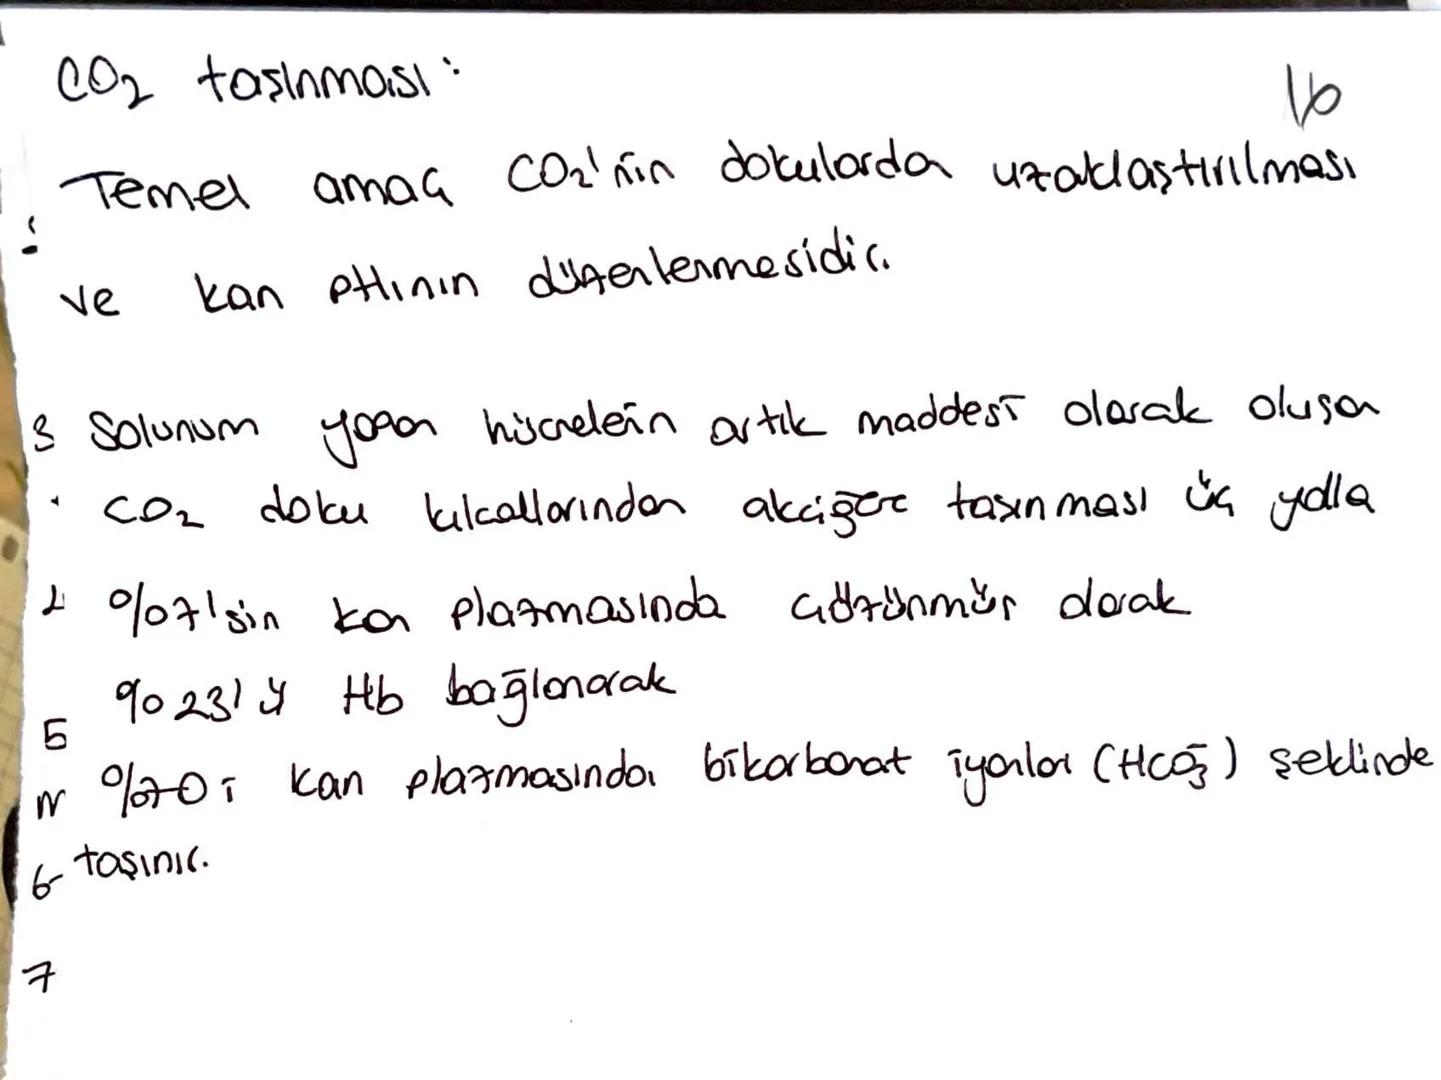 CO₂ taşınması:
16
Temel amaç CO₂'nin dokularda uzaklaştırılması
ve kan pHının düzenlenmesidir.
3 Solunum yapan hücrelerin artık maddesi olarak oluşan
CO₂ doku kılcallarından akciğere taşınması üç yolla
%7'sin kan plazmasında çözünmüş olarak
%23'ü Hb bağlanarak
5
%70 i kan plazmasında bikarbonat iyonları (HCO₃⁻) şeklinde
6 taşınır.
7